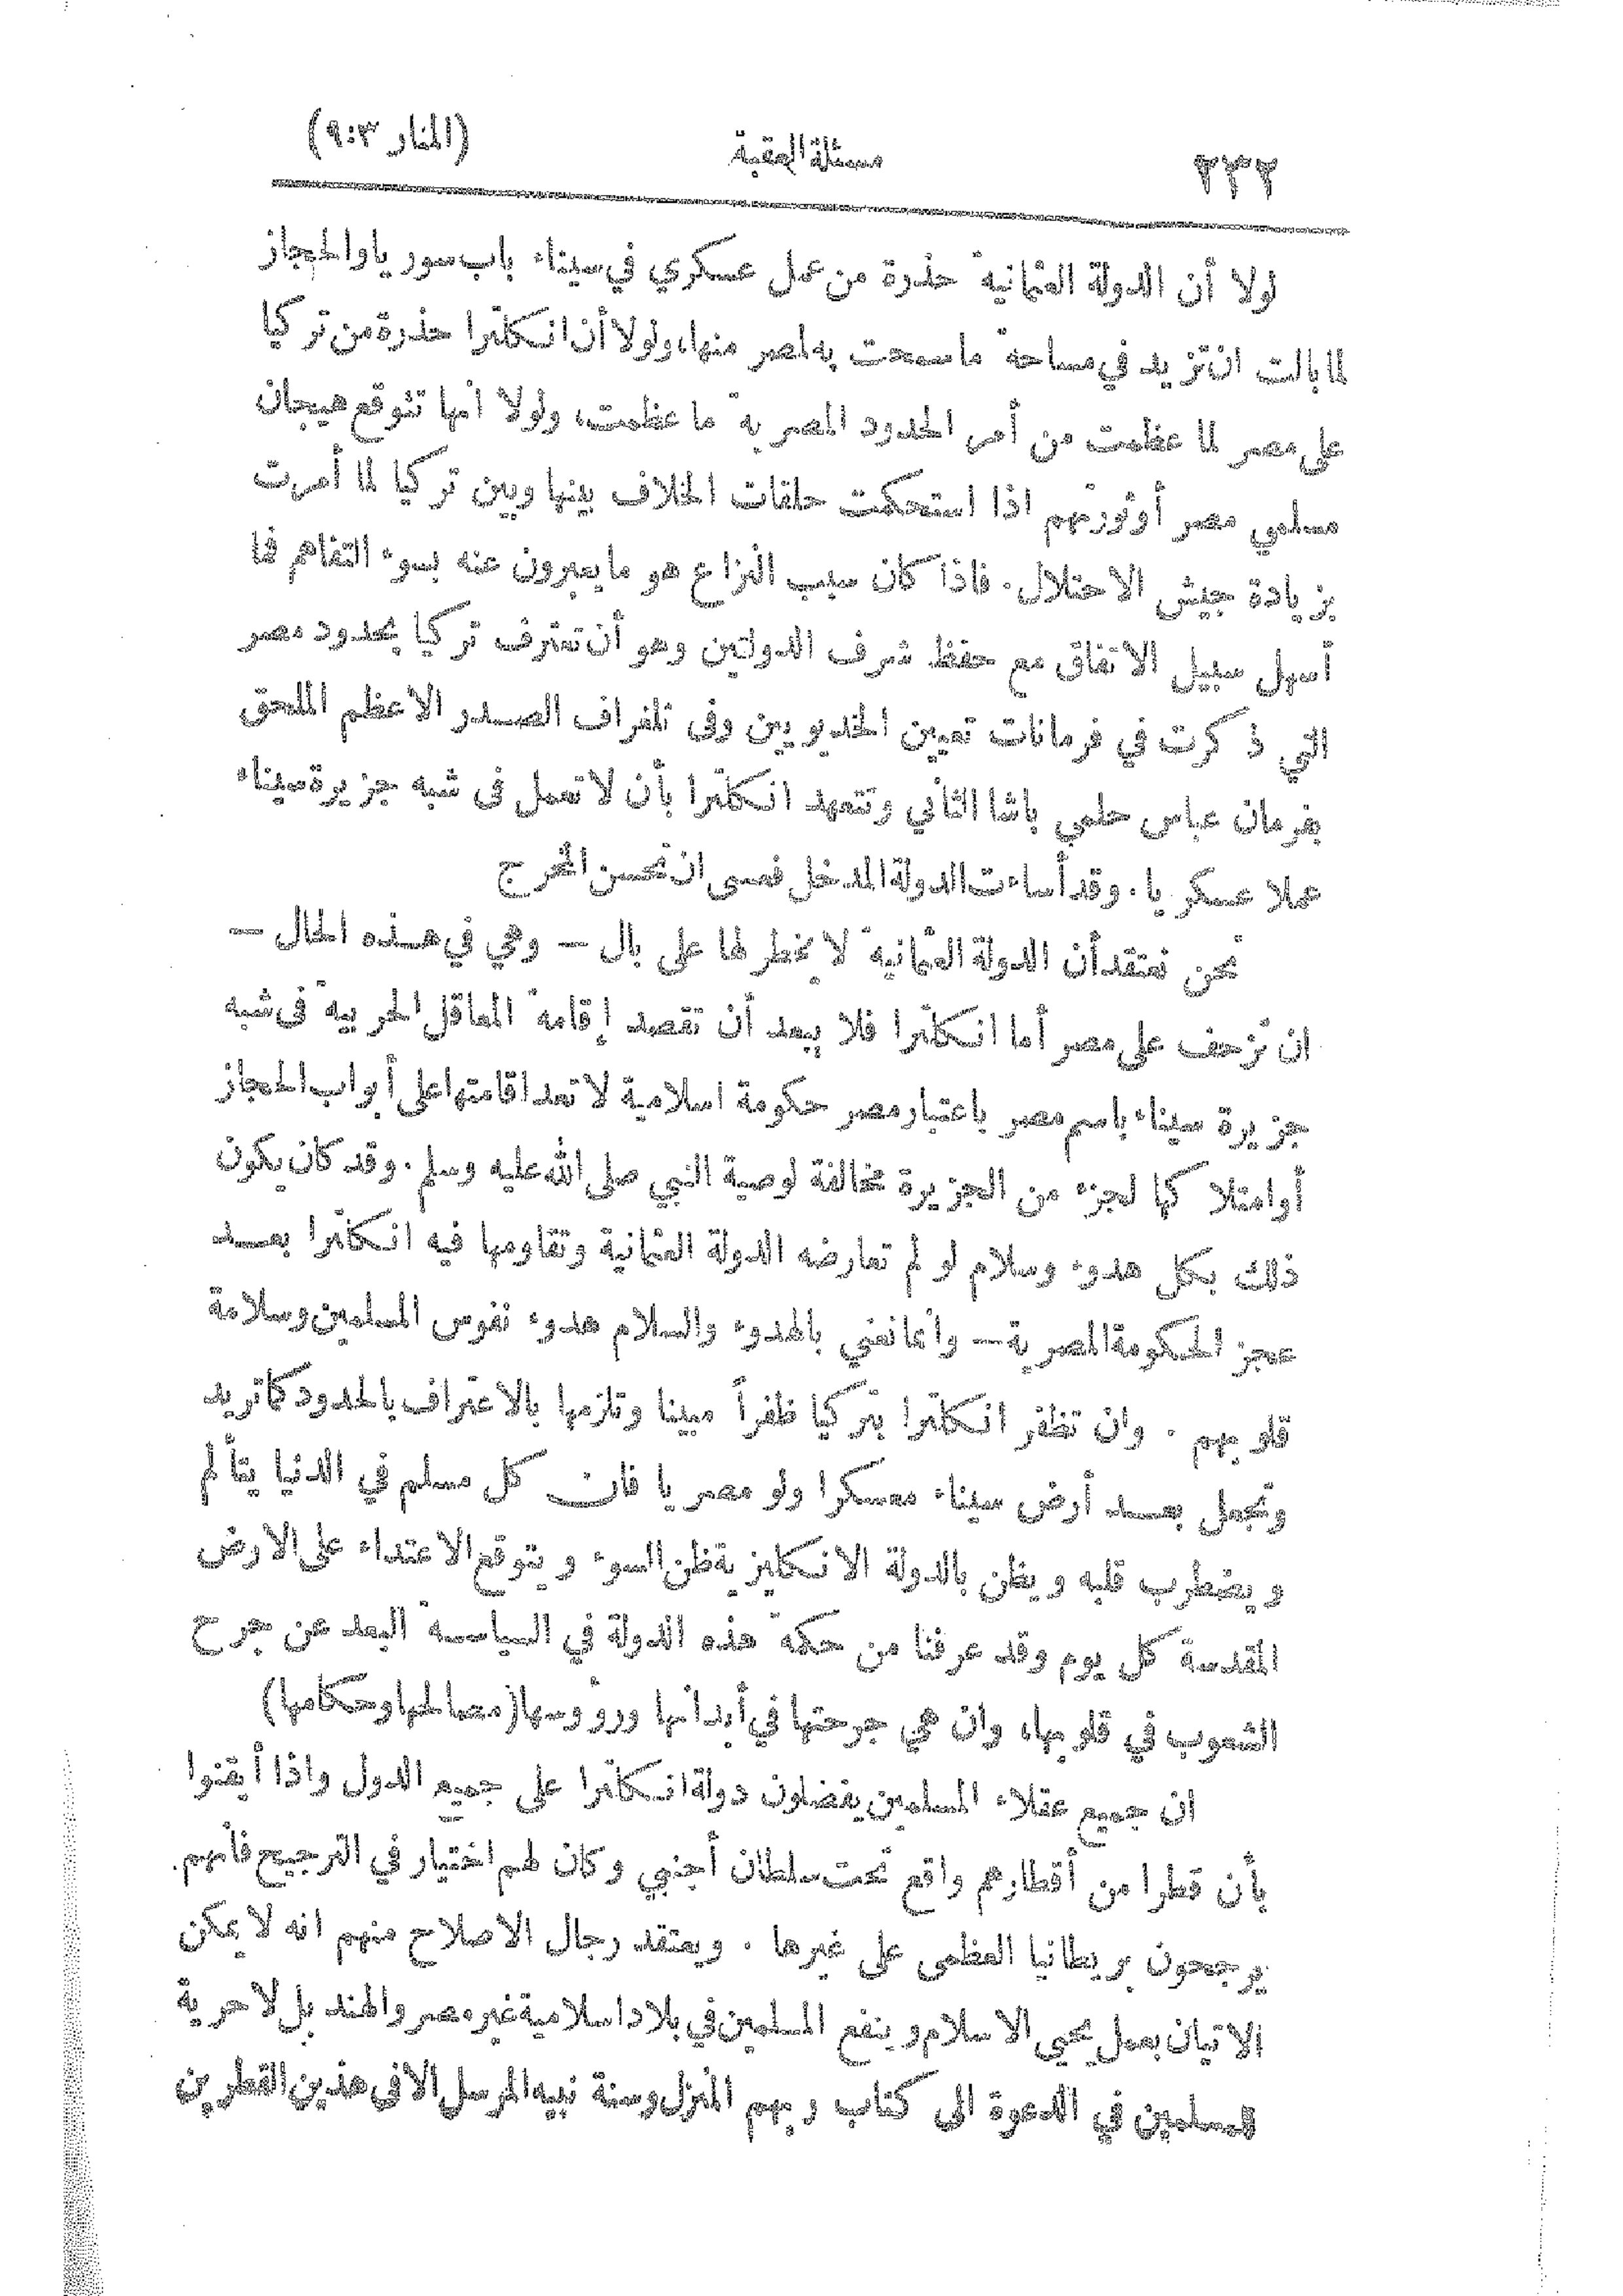 ٢٣٢ مسئلة العقبة (المنار ٩:٣)
لولا أن الدولة العثمانية حذرة من عمل عسكري في سيناء باب سوريا والحجاز
لما بالت ان تزيد في مساحة ما سمحت به لمصر منها، ولولا أن انكلترا حذرة من تركيا
على مصر لما عظمت من أمر الحدود المصرية ما عظمت، ولولا انها تتوقع هيجان
مسلمي مصر أو ثورتهم اذا استحكمت حلقات الخلاف بينها وبين تركيا لما أمرت
بزيادة جيش الاحتلال. فاذا كان سبب النزاع هو ما يعبرون عنه بسوء التفاهم فما
أسهل سبيل الاتفاق مع حفظ شرف الدولتين وهو أن تعترف تركيا بحدود مصر
التي ذكرت في فرمانات تعيين الخديويين وفى تلغراف الصدر الاعظم الملحق
بفرمان عباس حلمي باشا الثاني وتتعهد انكلترا بأن لا تعمل فى شبه جزيرة سيناء
عملا عسكريا. وقد أساءت الدولة المدخل فعسى ان تحسن المخرج
نحن نعتقد أن الدولة العثمانية لا يخطر لها على بال — وهي في هذه الحال —
ان تزحف على مصر أما انكلترا فلا يبعد أن تقصد إقامة المعاقل الحربية فى شبه
جزيرة سيناء باسم مصر باعتبار مصر حكومة اسلامية لا تعد اقامتها على أبواب الحجاز
أو امتلاكها لجزء من الجزيرة مخالفة لوصية النبي صلى الله عليه وسلم. وقد كان يكون
ذلك بكل هدوء وسلام لو لم تعارضه الدولة العثمانية وتقاومها فيه انكلترا بعد
عجز الحكومة المصرية — وانما نعني بالهدوء والسلام هدوء نفوس المسلمين وسلامة
قلوبهم . وان تظفر انكلترا بتركيا ظفراً مبينا وتلزمها بالاعتراف بالحدود كما تريد
وتجعل بعد أرض سيناء معسكرا ولو مصريا فان كل مسلم في الدنيا يتألم
ويضطرب قلبه ويظن بالدولة الانكليزية ظن السوء ويتوقع الاعتداء على الارض
المقدسة كل يوم وقد عرفنا من حكمة هذه الدولة في السياسة البعد عن جرح
الشعوب في قلوبها، وان هي جرحتها في أبدانها ورؤوسها (مصالحها وحكامها)
ان جميع عقلاء المسلمين يفضلون دولة انكلترا على جميع الدول واذا أيقنوا
بأن قطرا من أقطارهم واقع تحت سلطان أجنبي وكان لهم اختيار في الترجيح فانهم
يرجحون بريطانيا العظمى على غيرها . ويعتقد رجال الاصلاح منهم انه لا يمكن
الاتيان بعمل يحيى الاسلام وينفع المسلمين في بلاد اسلامية غير مصر والهند بل لا حرية
للمسلمين في الدعوة الى كتاب ربهم المنزل وسنة نبيه المرسل الا فى هذين القطرين